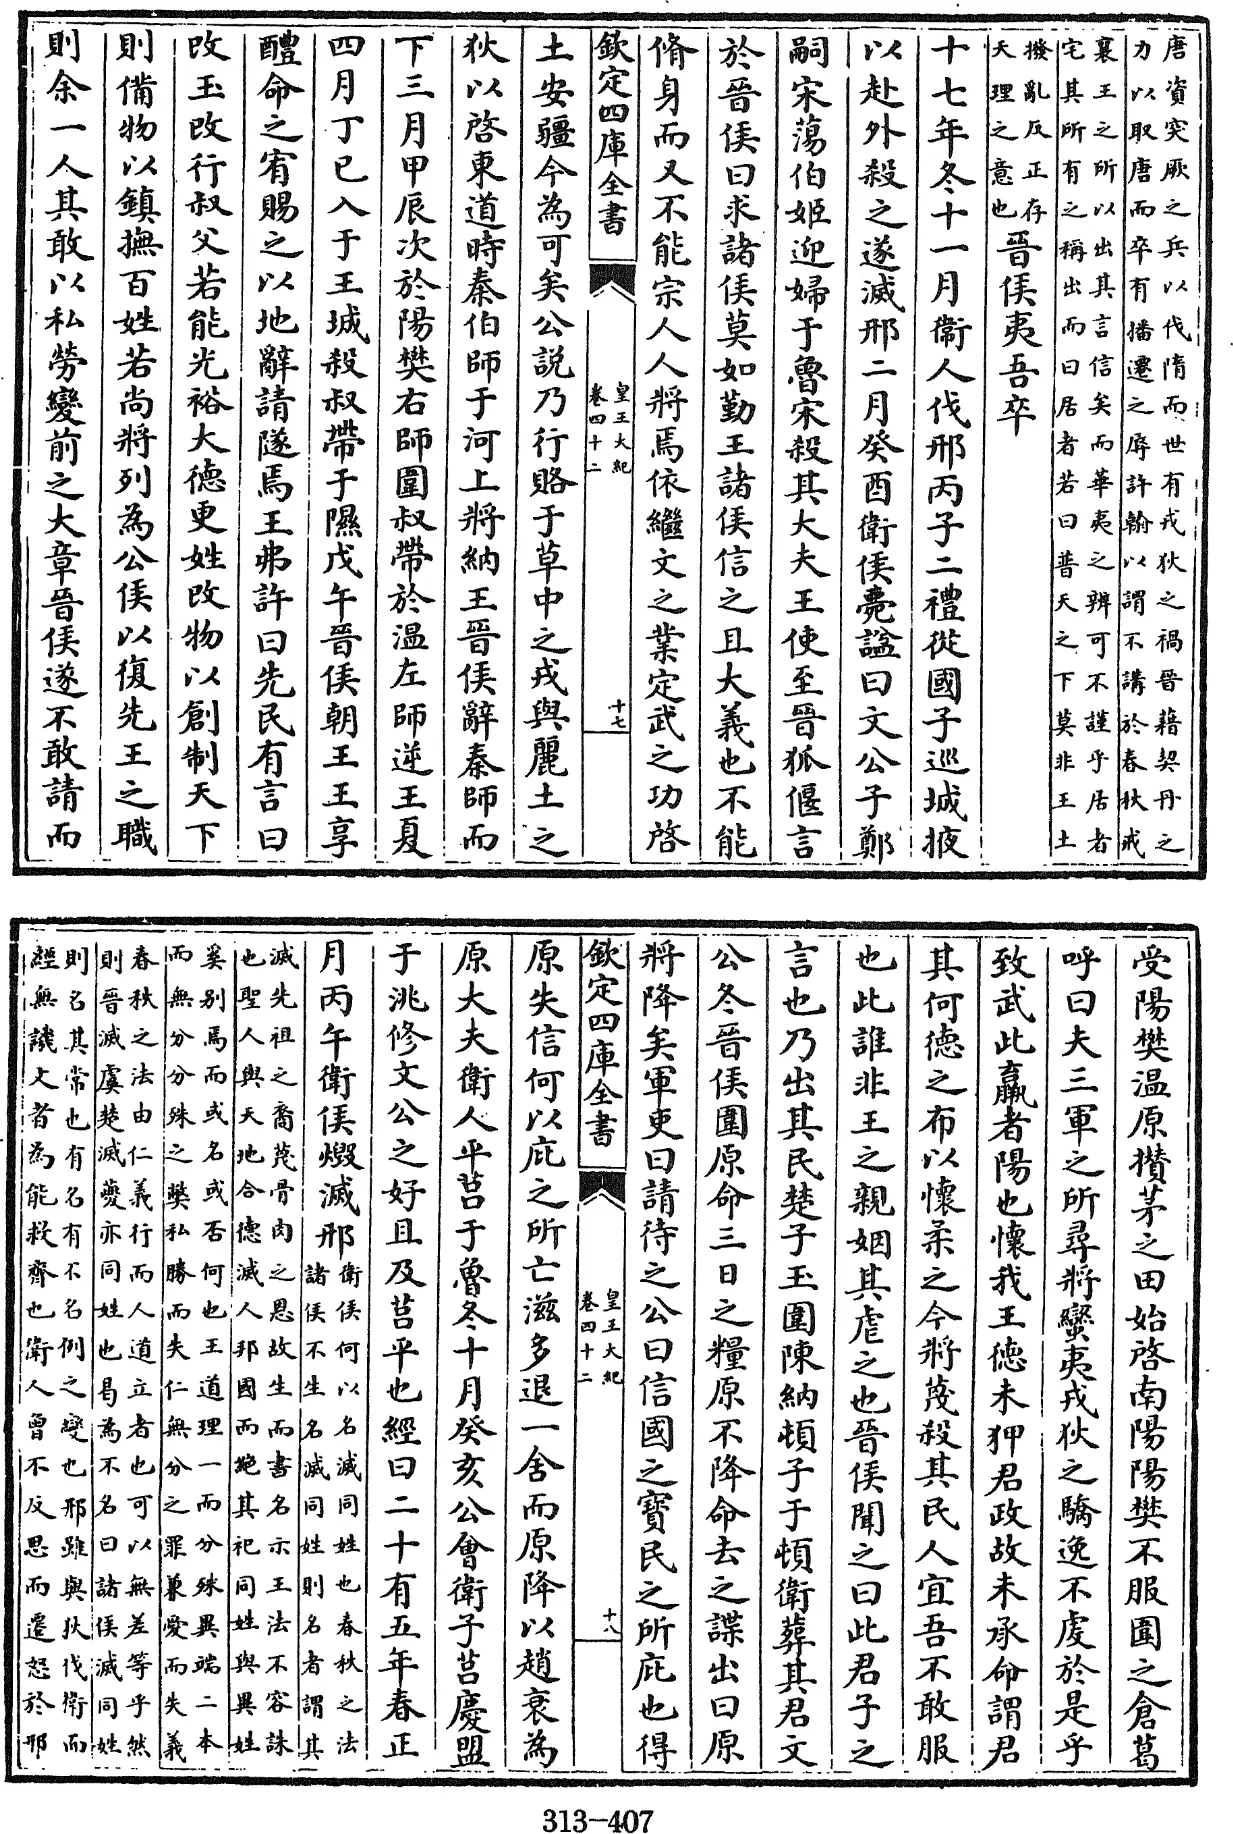 唐資突厥之兵以伐隋而世有戎狄之禍晉藉契丹之
力以取唐而卒有播遷之辱許翰以謂不講於春秋戒
襄王之所以出其言信矣而華夷之辨可不謹乎居者
宅其所有之稱出而曰居者若曰普天之下莫非王土
撥亂反正存
天理之意也晉侯夷吾卒
十七年冬十一月衛人伐邢丙子二禮從國子巡城掖
以赴外殺之遂滅邢二月癸酉衛侯薨諡曰文公子鄭
嗣宋蕩伯姬迎婦于魯宋殺其大夫王使至晉狐偃言
於晉侯曰求諸侯莫如勤王諸侯信之且大義也不能
脩身而又不能宗人人將焉依繼文之業定武之功啓
欽定四庫全書
皇王大紀
卷四十二
十七
土安疆今為可矣公説乃行賂于草中之戎與麗土之
狄以啓東道時秦伯師于河上將納王晉侯辭秦師而
下三月甲辰次於陽樊右師圍叔帶於温左師逆王夏
四月丁巳入于王城殺叔帶于隰戊午晉侯朝王王享
醴命之宥賜之以地辭請隧焉王弗許曰先民有言曰
改玉改行叔父若能光裕大德更姓改物以創制天下
則備物以鎮撫百姓若尚將列為公侯以復先王之職
則余一人其敢以私勞變前之大章晉侯遂不敢請而
受陽樊温原攅茅之田始啓南陽陽樊不服圍之倉葛
呼曰夫三軍之所尋將蠻夷戎狄之驕逸不虔於是乎
致武此羸者陽也懷我王德未狎君政故未承命謂君
其何德之布以懷柔之今將蔑殺其民人宜吾不敢服
也此誰非王之親姻其虐之也晉侯聞之曰此君子之
言也乃出其民楚子玉圍陳納頓子于頓衛葬其君文
公冬晉侯圍原命三日之糧原不降命去之諜出曰原
將降矣軍吏曰請待之公曰信國之寳民之所庇也得
欽定四庫全書
皇王大紀
卷四十二
十八
原失信何以庇之所亡滋多退一舍而原降以趙衰為
原大夫衛人平莒于魯冬十月癸亥公會衛子莒慶盟
于洮修文公之好且及莒平也經曰二十有五年春正
月丙午衛侯燬滅邢衛侯何以名滅同姓也春秋之法
諸侯不生名滅同姓則名者謂其
滅先祖之裔蔑骨肉之恩故生而書名示王法不容誅
也聖人與天地合德滅人邦國而絶其祀同姓與異姓
奚别焉而或名或否何也王道理一而分殊異端二本
而無分分殊之獘私勝而失仁無分之罪兼愛而失義
春秋之法由仁義行而人道立者也可以無差等乎然
則晉滅虞楚滅夔亦同姓也曷為不名曰諸侯滅同姓
則名其常也有名有不名例之變也邢雖與狄伐衛而
經無譏文者為能救齊也衛人曾不反思而遷怒於邢
313-407